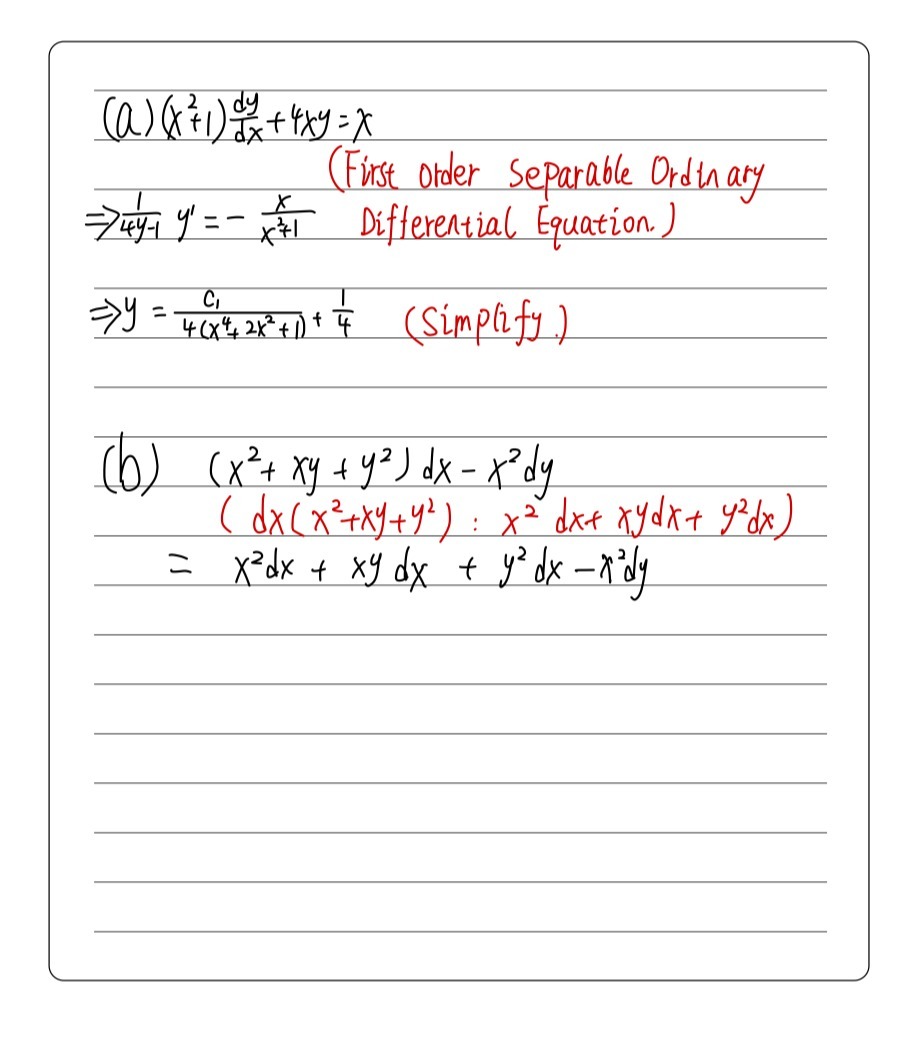 (a) (x²+1) dy/dx + 4xy = x
(First order Separable Ordinary
⇒ 1/(4y-1) y' = - x/(x²+1) Differential Equation.)
⇒ y = C₁/(4(x⁴+2x²+1)) + 1/4 (Simplify.)
(b) (x² + xy + y²) dx - x² dy
( dx (x²+xy+y²) : x² dx + xy dx + y² dx )
= x² dx + xy dx + y² dx - x² dy